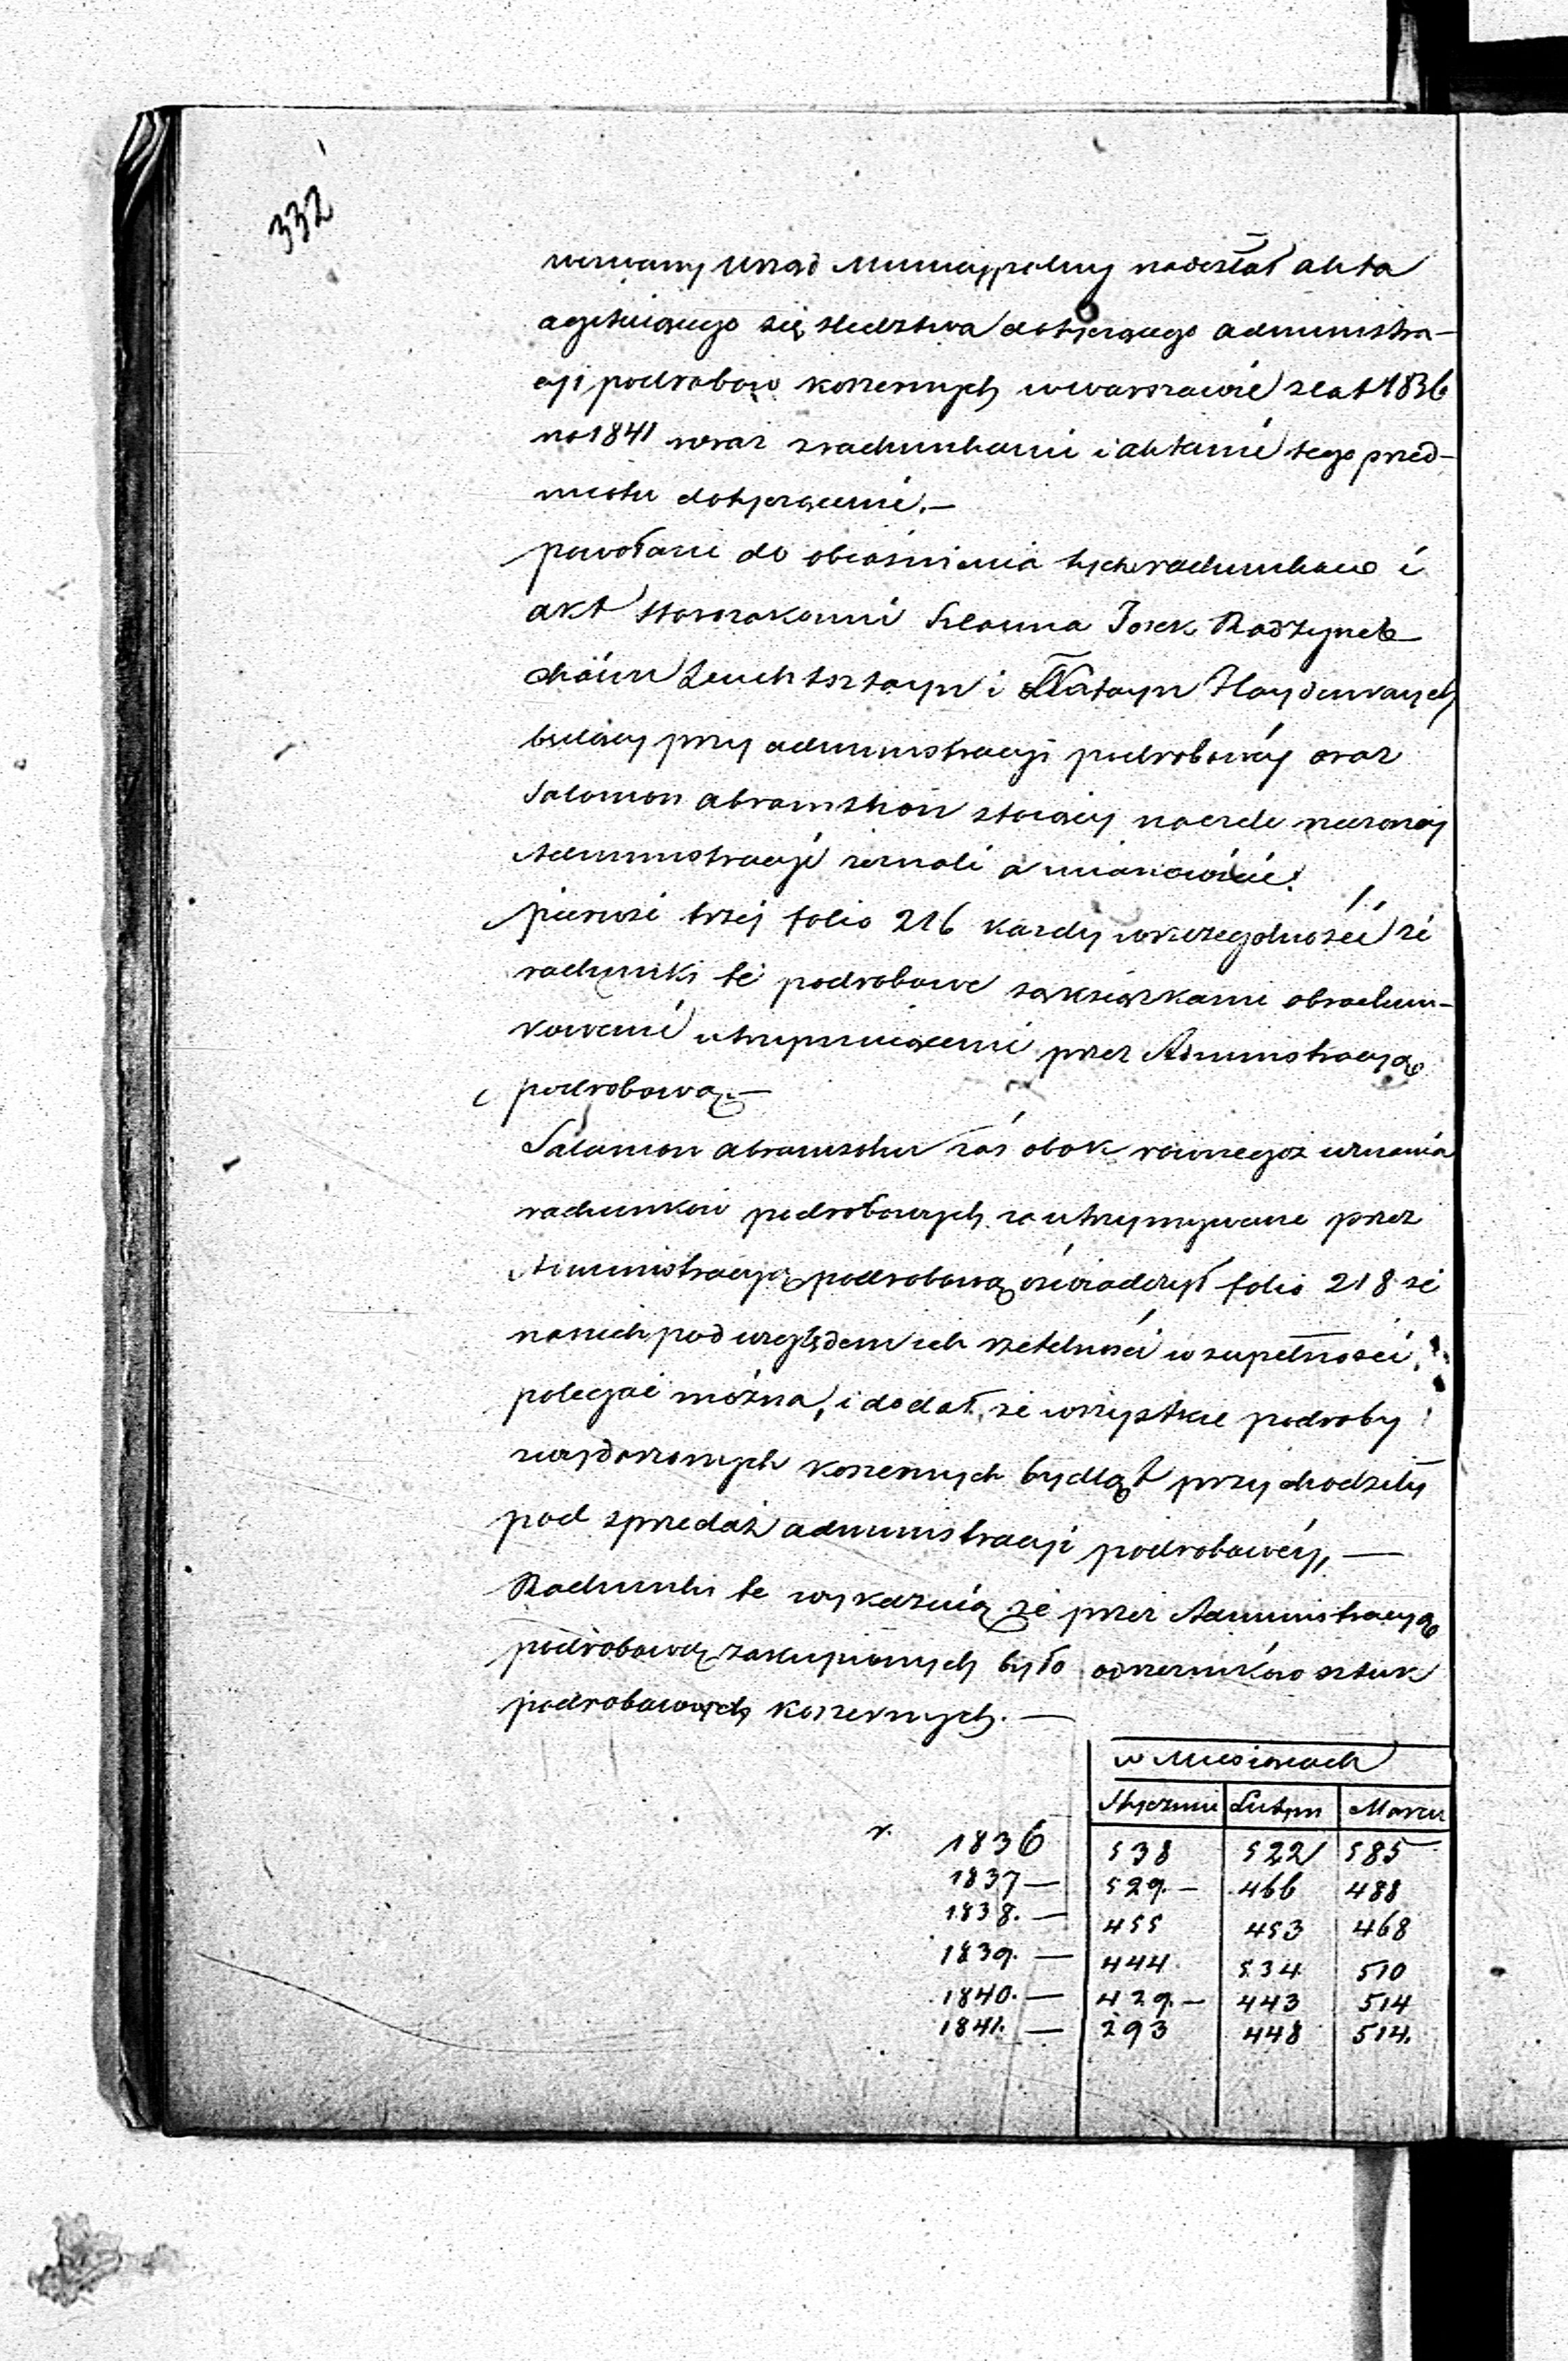 332
wezwany Urząd Municypalny nadesłał akta
agituiącego się śledztwa dotyczącego administra-
cyi podrobow koszernych w Warszawie z lat 1836
na 1841 wraz z rachunkami i aktami tego przed-
miotu dotyczącemi.—
powołani do obiaśnienia tych rachunkow i
akt Starozakonni Szlama Josek Radzynek
Chaim Leuchtsztayn i Sztayn
będący przy administracyi podrobowéy oraz
Salomon Abramshon stoiący na czele rzeczonéj
Administracyi zeznali a mianowicie:
pierwsi trzej folio 216 każdy w szczegolności że
rachunki te podrobowe są książkami obrachun-
kowemi utrzymuiącemi przez Administracyą
podrobową.—
Salamon Abramsohn zaś obok równegoż uznania
rachunków podrobowych za utrzymywane przez
Administracyą podrobową oświadczył folio 218 że
na nich pod względem ich rzetelności w zupełności
polegać można, i dodał, że wszystkie podroby
koszernych bydląt przychodziły
pod sprzedaż administracyi podrobowéy,—
Rachunki te wykazuią że przez Administracyą
podrobową zakupionych było od rzezników sztuk
podrobowych koszernych.—
w Miesiącach
Styczniu Lutym Marcu
r. 1836 538 522 585
1837— 529.— 466 488
1838.— 455 453 468
1839.— 444 534 510
1840.— 429.— 443 514
1841.— 293 448 514.